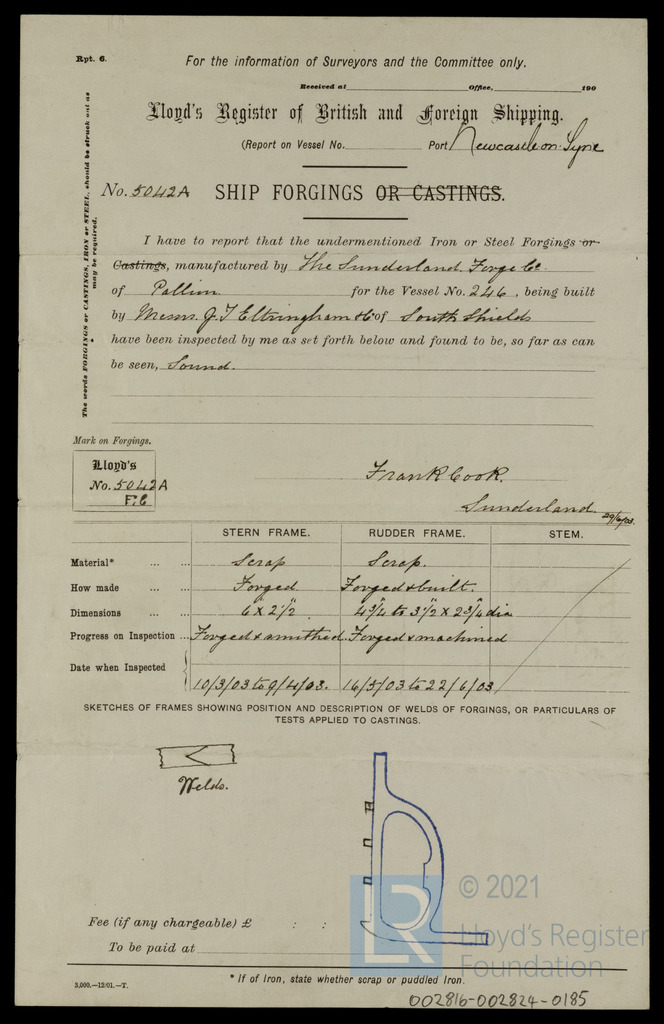 Rpt. 6.
For the information of Surveyors and the Committee only.
Received at Office, 190
Lloyd's Register of British and Foreign Shipping.
(Report on Vessel No. Port Newcastle on Tyne
The words FORGINGS or CASTINGS, IRON or STEEL, should be struck out as may be required.
No. 5042A SHIP FORGINGS OR CASTINGS.
I have to report that the undermentioned Iron or Steel Forgings or
Castings, manufactured by The Sunderland Forge Co.
of Pallion for the Vessel No. 246, being built
by Messrs J. T. Eltringham & Co of South Shields
have been inspected by me as set forth below and found to be, so far as can
be seen, Sound.
Mark on Forgings.
Lloyd's
No. 5042A
F.C
Frank Cook.
Sunderland. 29/6/03.
STERN FRAME. RUDDER FRAME. STEM.
Material* ... ... Scrap Scrap.
How made ... ... Forged Forged & built.
Dimensions ... ... 6" x 2½" 4¾" to 3½" x 2¾" dia
Progress on Inspection ... Forged & smithed. Forged & machined
Date when Inspected
10/3/03 to 9/4/03. 16/5/03 to 22/6/03
SKETCHES OF FRAMES SHOWING POSITION AND DESCRIPTION OF WELDS OF FORGINGS, OR PARTICULARS OF
TESTS APPLIED TO CASTINGS.
Welds.
LR
© 2021
Lloyd's Register
Foundation
Fee (if any chargeable) £ : :
To be paid at
* If of Iron, state whether scrap or puddled Iron.
3,000.—12/01.—T.
002816-002824-0185